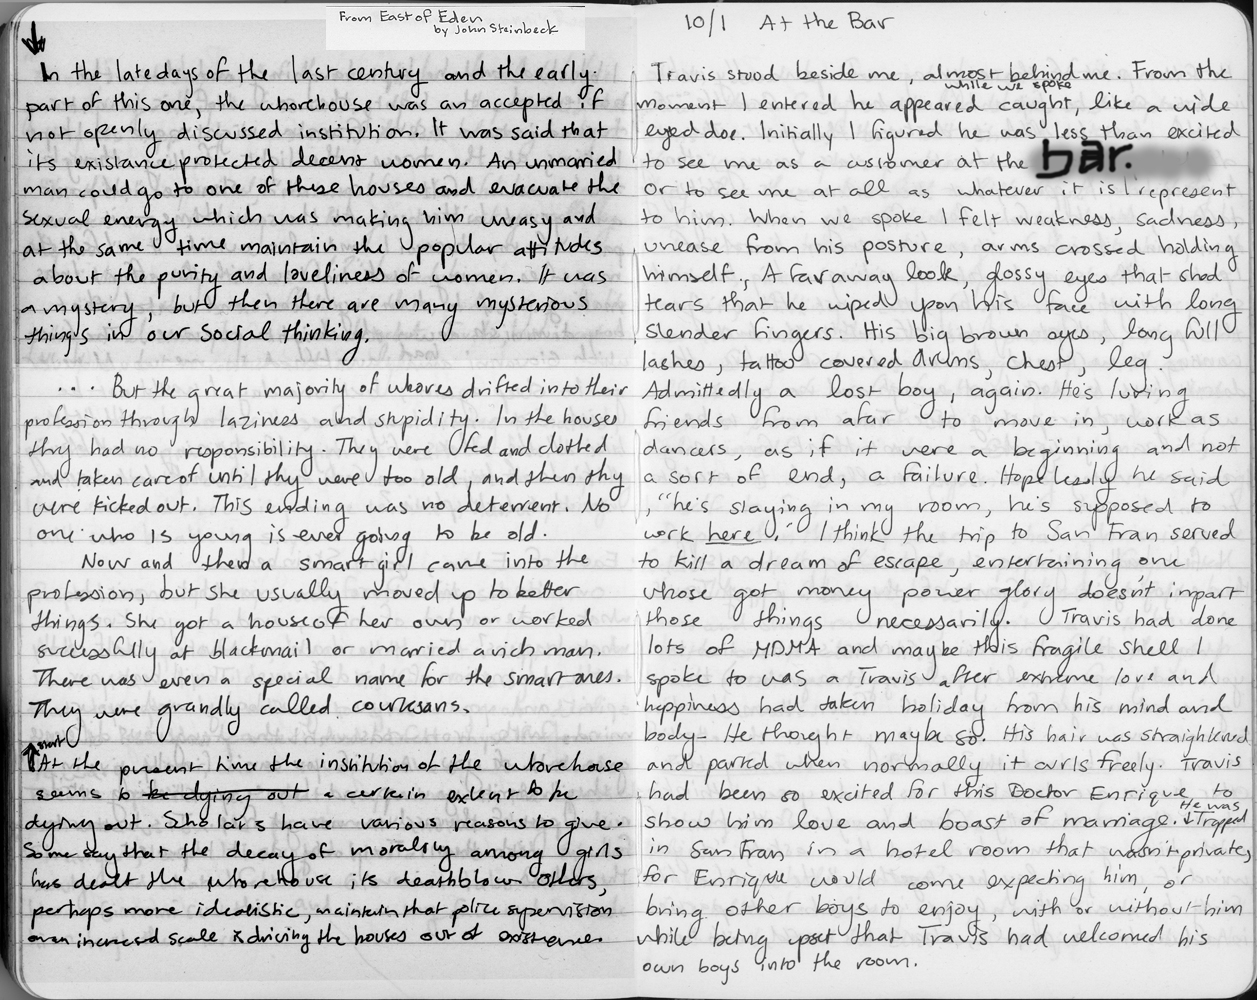 From East of Eden
by John Steinbeck
In the late days of the last century and the early
part of this one, the whorehouse was an accepted if
not openly discussed institution. It was said that
its existance protected decent women. An unmarried
man could go to one of these houses and evacuate the
sexual energy which was making him uneasy and
at the same time maintain the popular attitudes
about the purity and loveliness of women. It was
a mystery, but then there are many mysterious
things in our social thinking.
... But the great majority of whores drifted into their
profession through laziness and stupidity. In the houses
they had no responsibility. They were fed and clothed
and taken care of until they were too old, and then they
were kicked out. This ending was no deterrent. No
one who is young is ever going to be old.
Now and then a smart girl came into the
profession, but she usually moved up to better
things. She got a house of her own or worked
successfully at blackmail or married a rich man.
There was even a special name for the smart ones.
They were grandly called courtesans.
start
At the present time the institution of the whorehouse
seems to be dying out a certain extent to be
dying out. Scholars have various reasons to give.
Some say that the decay of morality among girls
has dealt the whorehouse its deathblow. Others,
perhaps more idealistic, maintain that police supervision
on an increased scale is driving the houses out of existence.
10/1 At the Bar
Travis stood beside me, almost behind me. From the
while we spoke
moment I entered he appeared caught, like a wide
eyed doe. Initially I figured he was less than excited
to see me as a customer at the bar.
or to see me at all as whatever it is I represent
to him. When we spoke I felt weakness, sadness,
unease from his posture, arms crossed holding
himself., A far away look, glossy eyes that shed
tears that he wiped upon his face with long
slender fingers. His big brown eyes, long full
lashes, tattoo covered arms, chest, leg.
Admittedly a lost boy, again. He's luring
friends from afar to move in, work as
dancers, as if it were a beginning and not
a sort of end, a failure. Hopelessly he said
, "he's staying in my room, he's supposed to
work here." I think the trip to San Fran served
to kill a dream of escape, entertaining one
whose got money power glory doesn't impart
those things necessarily. Travis had done
lots of MDMA and maybe this fragile shell I
spoke to was a Travis after extreme love and
happiness had taken holiday from his mind and
body- He thought maybe so. His hair was straightened
and parted when normally it curls freely. Travis
had been so excited for this Doctor Enrique to
show him love and boast of marriage. He was Trapped
in San Fran in a hotel room that wasn't private,
for Enrique would come expecting him, or
bring other boys to enjoy, with or without him
while being upset that Travis had welcomed his
own boys into the room.